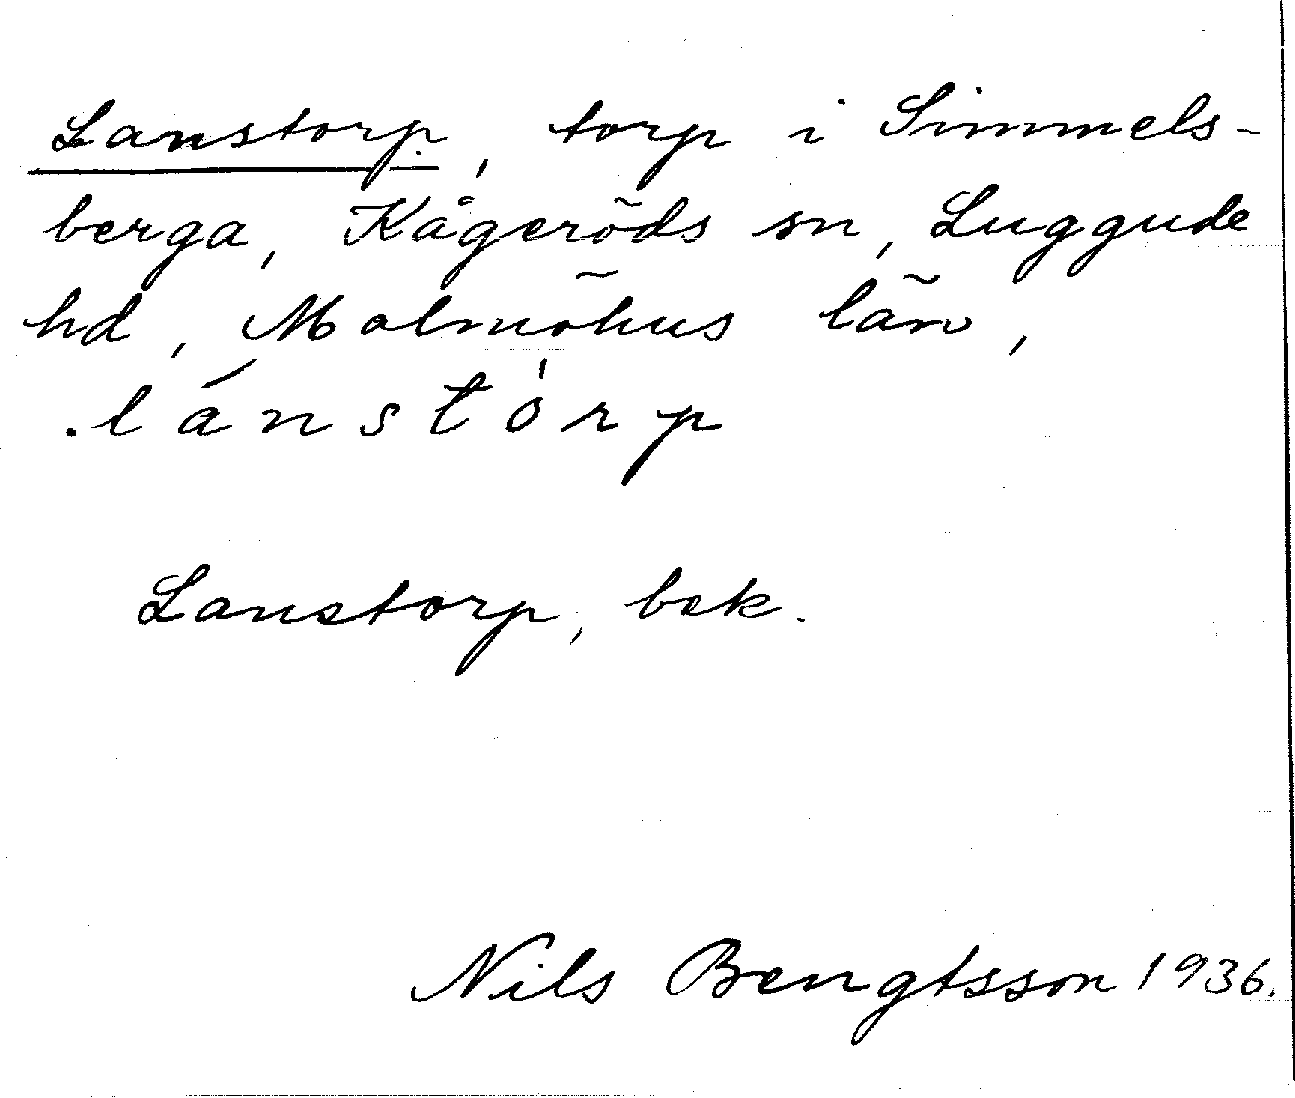 Lanstorp, torp i Simmels-
berga, Kågeröds sn, Luggude
hd, Malmöhus län,
.lánstórp
Lanstorp, bek.
Nils Bengtsson 1936.